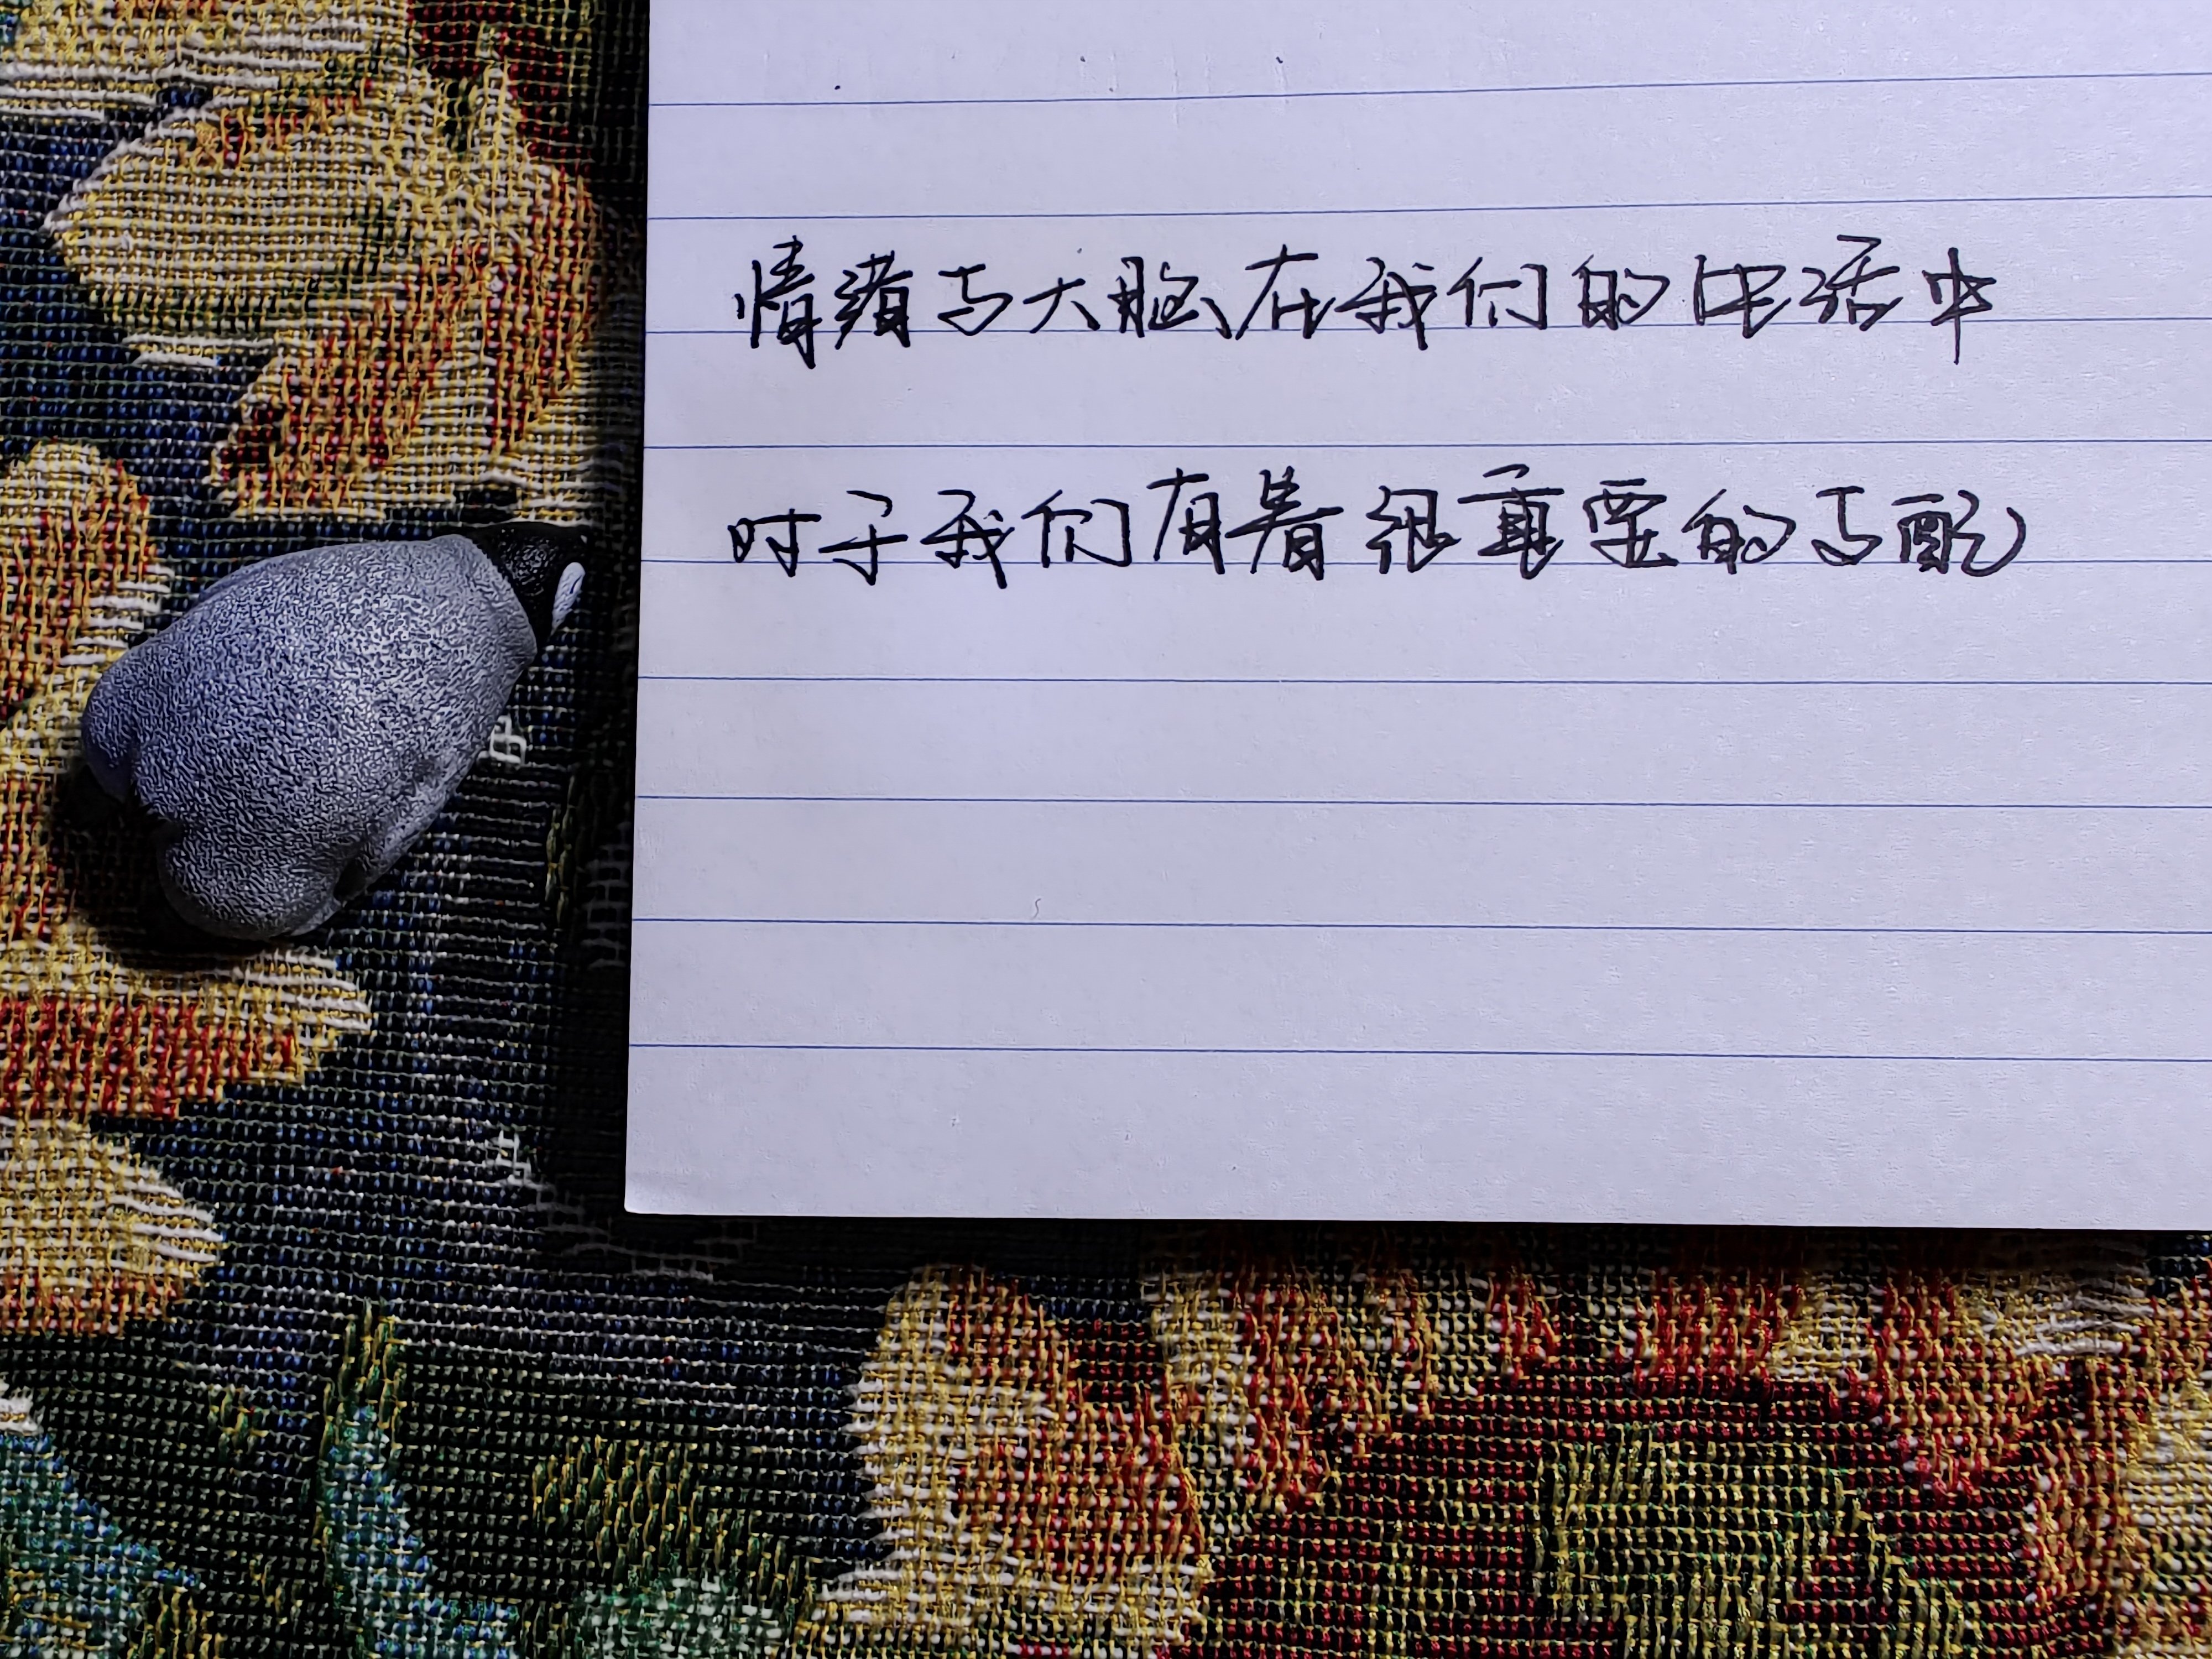 情绪与大脑在我们的电话中
对于我们有着很重要的与配